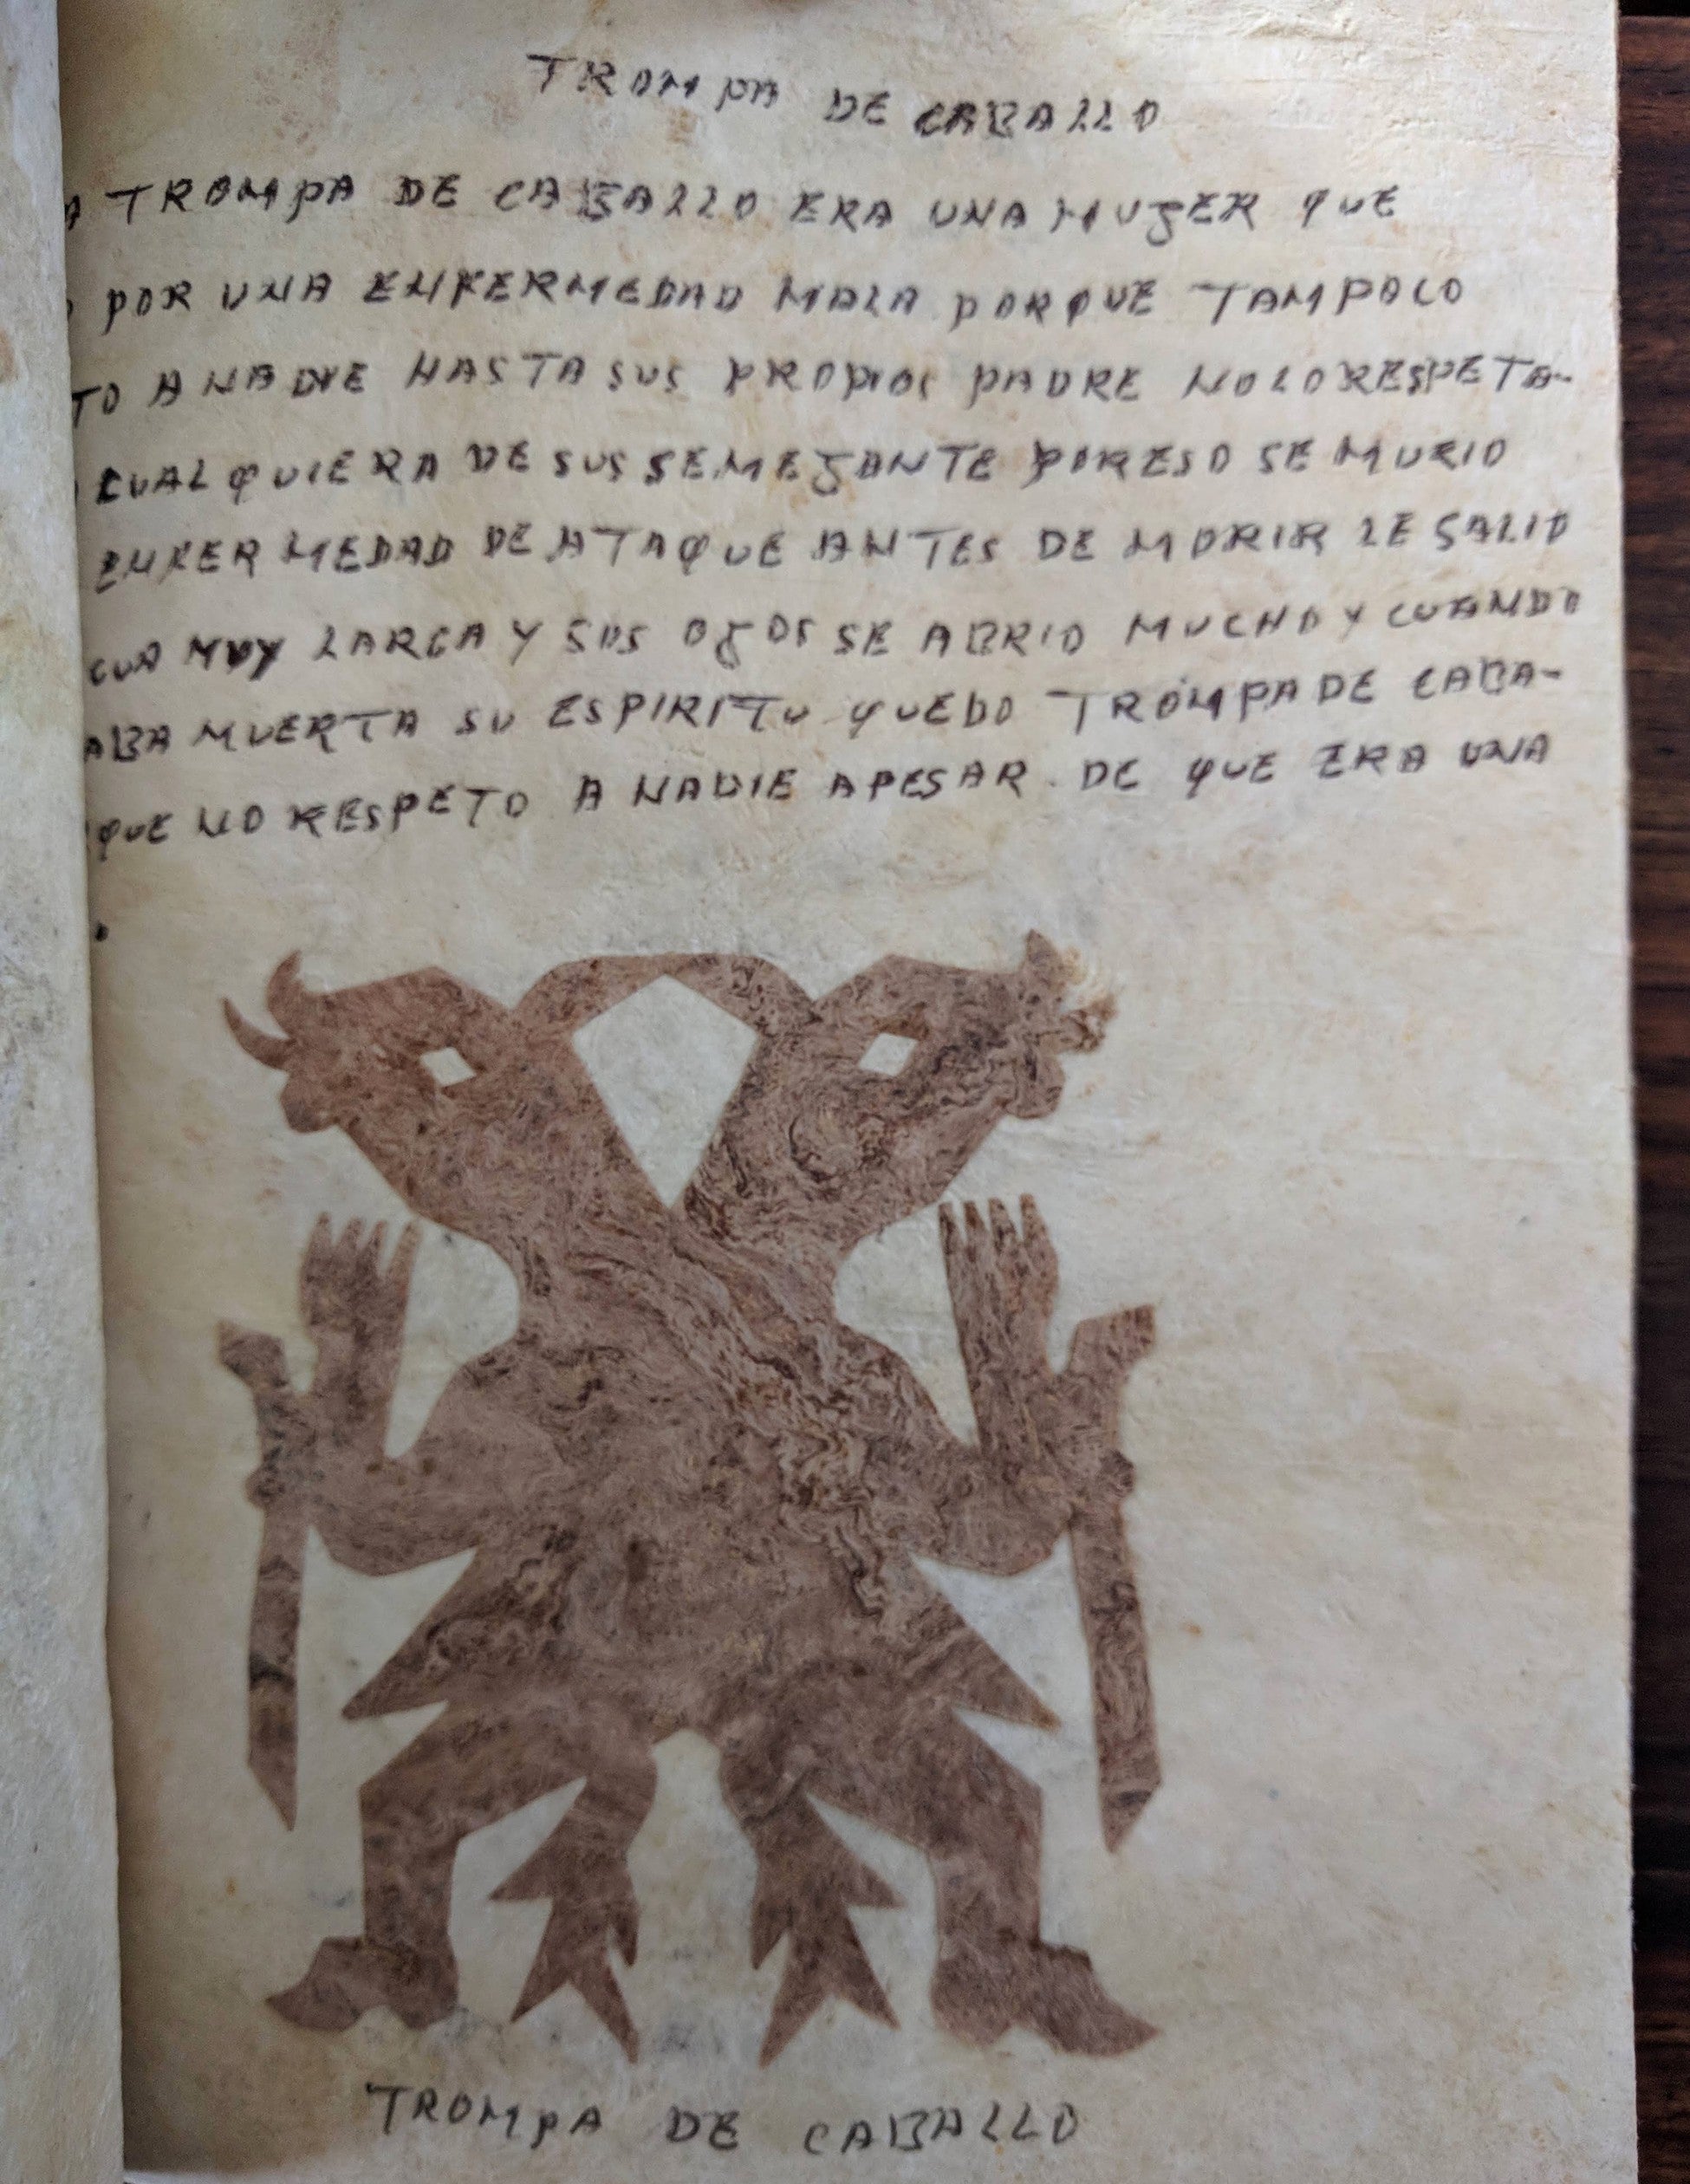 TROMPA DE CABALLO
A TROMPA DE CABALLO ERA UNA MUJER QUE
POR UNA ENFERMEDAD MALA PORQUE TAMPOCO
TO A NADIE HASTA SUS PROPIOS PADRE NO LO RESPETA-
CUALQUIERA DE SUS SEMEJANTE POR ESO SE MURIO
ENFERMEDAD DE ATAQUE ANTES DE MORIR LE SALIO
GUA MUY LARGA Y SUS OJOS SE ABRIO MUCHO Y CUANDO
ABA MUERTA SU ESPIRITU QUEDO TROMPA DE CABA-
QUE NO RESPETO A NADIE APESAR DE QUE ERA UNA
TROMPA DE CABALLO